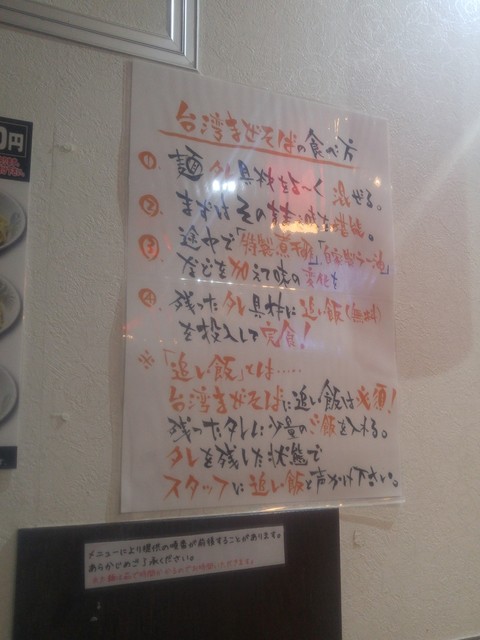 円
台湾まぜそばの食べ方
① 麺 タレ 具材をよ〜く 混ぜる。
② まずはそのまま味を堪能。
③ 途中で「特製煮干酢」「自家製ラー油」
などを加えて味の変化を
④ 残ったタレ具材に追い飯(無料)
を投入して完食!
※「追い飯」とは……
台湾まぜそばに追い飯は必須!
残ったタレに少量のご飯を入れる。
タレを残した状態で
スタッフに追い飯と声かけ下さい。
メニューにより提供の順番が前後することがあります。
あらかじめご了承ください。